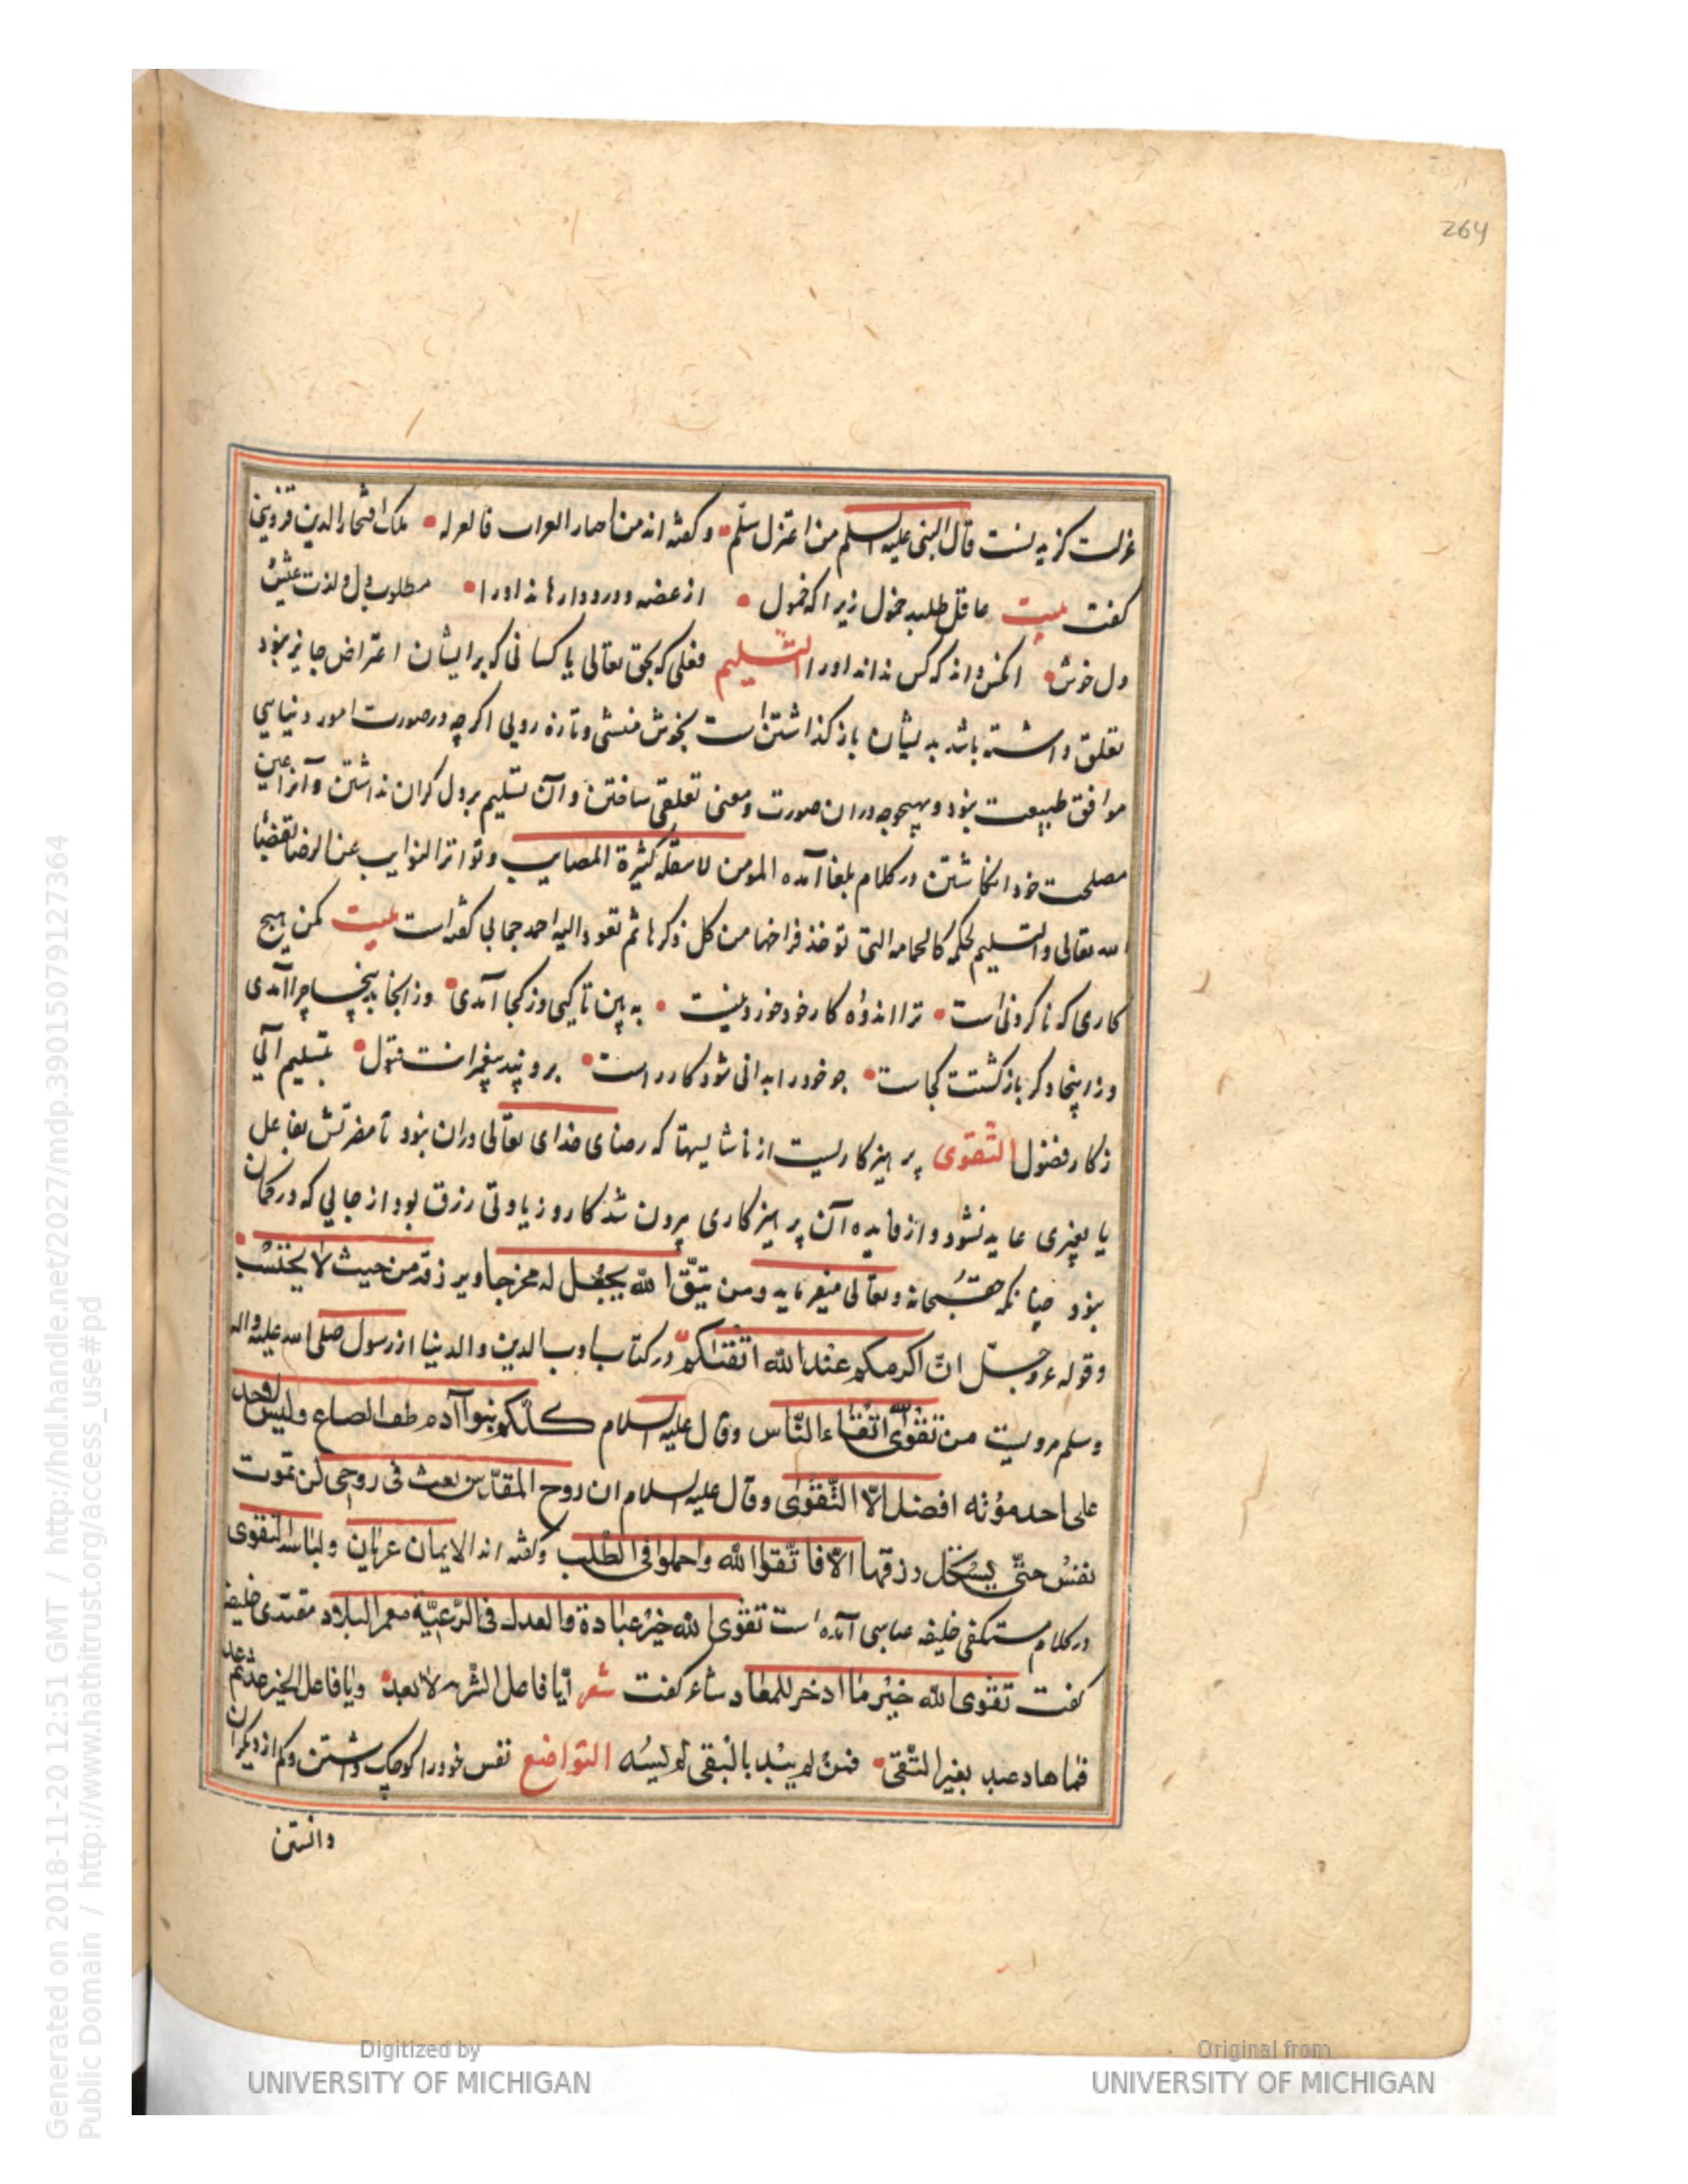 264
عزلت کزیدنست قال النبی علیه السلم من اعتزل سلّم وکفته اند من اختار العزلت فالعز له ملک افتخار الدین قزوینی
کفت بیت عاقل طلبد خمول زیرا که خمول از عضه ودرد دارها ند اورا مطلوب دل ولذت عیش
دل خوش انکس داند که کس نداند اورا التسلیم فعلی که بحق تعالی یا کسانی که بر ایشان اعتراض جایز نبود
تعلق داشته باشد بدیشان باز کذاشتن است بخوش منشی وتازه رویی اکرچه در صورت امور دنیایی
موافق طبیعت نبود وبهیچوجه دران صورت ومعنی تعلقی ساختن وآن تسلیم بر دل کران نداشتن وآنرا عین
مصلحت خود انکاشتن در کلام بلغا آمده المومن لا کثرة المصایب وتواتر النوایب عن الرضا بقضا
الله تعالی والتسلیم لحکمه کالحمامه التی توخذ فراخها من کل ذکرها ثم تعود الیه احد جمالی کفته است بیت مکن هیچ
کاری که ناکردنی است ترا اندوه کار خود خوردنیست به بین تا کیی وز کجا آمدی وز انجا بینجا چرا آمدی
وز اینجا دکر باز کشتت کجاست جو خود را بدانی شود کار راست برو پند پیغمرانت بتسلیم آلی
ز کار فضول التقوی پرهیزکاریست از ناشایستها که رضای خدای تعالی دران نبود تا مضرتش بفاعل
یا بغیری عاید نشود واز فایده آن پرهیزکاری بیرون شد کار و زیادتی رزق بود از جایی که در کمان
نبود چنانکه حق سبحانه وتعالی میفرماید ومن یتّق الله یجعل له مخرجا ویرزقه من حیث لا یحتسب
وقوله عزوجلّ انّ اکرمکم عند الله اتقیکم در کتاب ادب الدین والدنیا از رسول صلی الله علیه واله
وسلم مرویست من تقوی الله اتقاء النّاس وقال علیه السلام کلّکم بنوا آدم طف الصاع ولیس لاحد
علی احد مؤنه افضل الّا التّقوی وقال علیه السلام ان روح المقدّس نفث فی روحی لن تموت
نفس حتّی یستکل رزقها الا فاتّقوا الله واجملوا فی الطّلب وکفته اند الایمان عریان ولباسه التقوی
در کلام مستکفی خلیفه عباسی آمده است تقوی الله خیر عبادة والعدل فی الرّعیّة معمر البلاد مقتدی خلیفه
کفت تقوی الله خیر ما ادخر للمعاد شاعر کفت شعر ایا فاعل الشر لا تعد ویا فاعل الخیر عد ثم عد
فما هاد عبد بغیر التّقی فمن لم یسد بالتّقی لم یسد التواضع نفس خود را کوچک داشتن وکم از دیکران
دانستن
Generated on 2018-11-20 12:51 GMT / http://hdl.handle.net/2027/mdp.39015079127364
Public Domain / http://www.hathitrust.org/access_use#pd
Digitized by
UNIVERSITY OF MICHIGAN
Original from
UNIVERSITY OF MICHIGAN